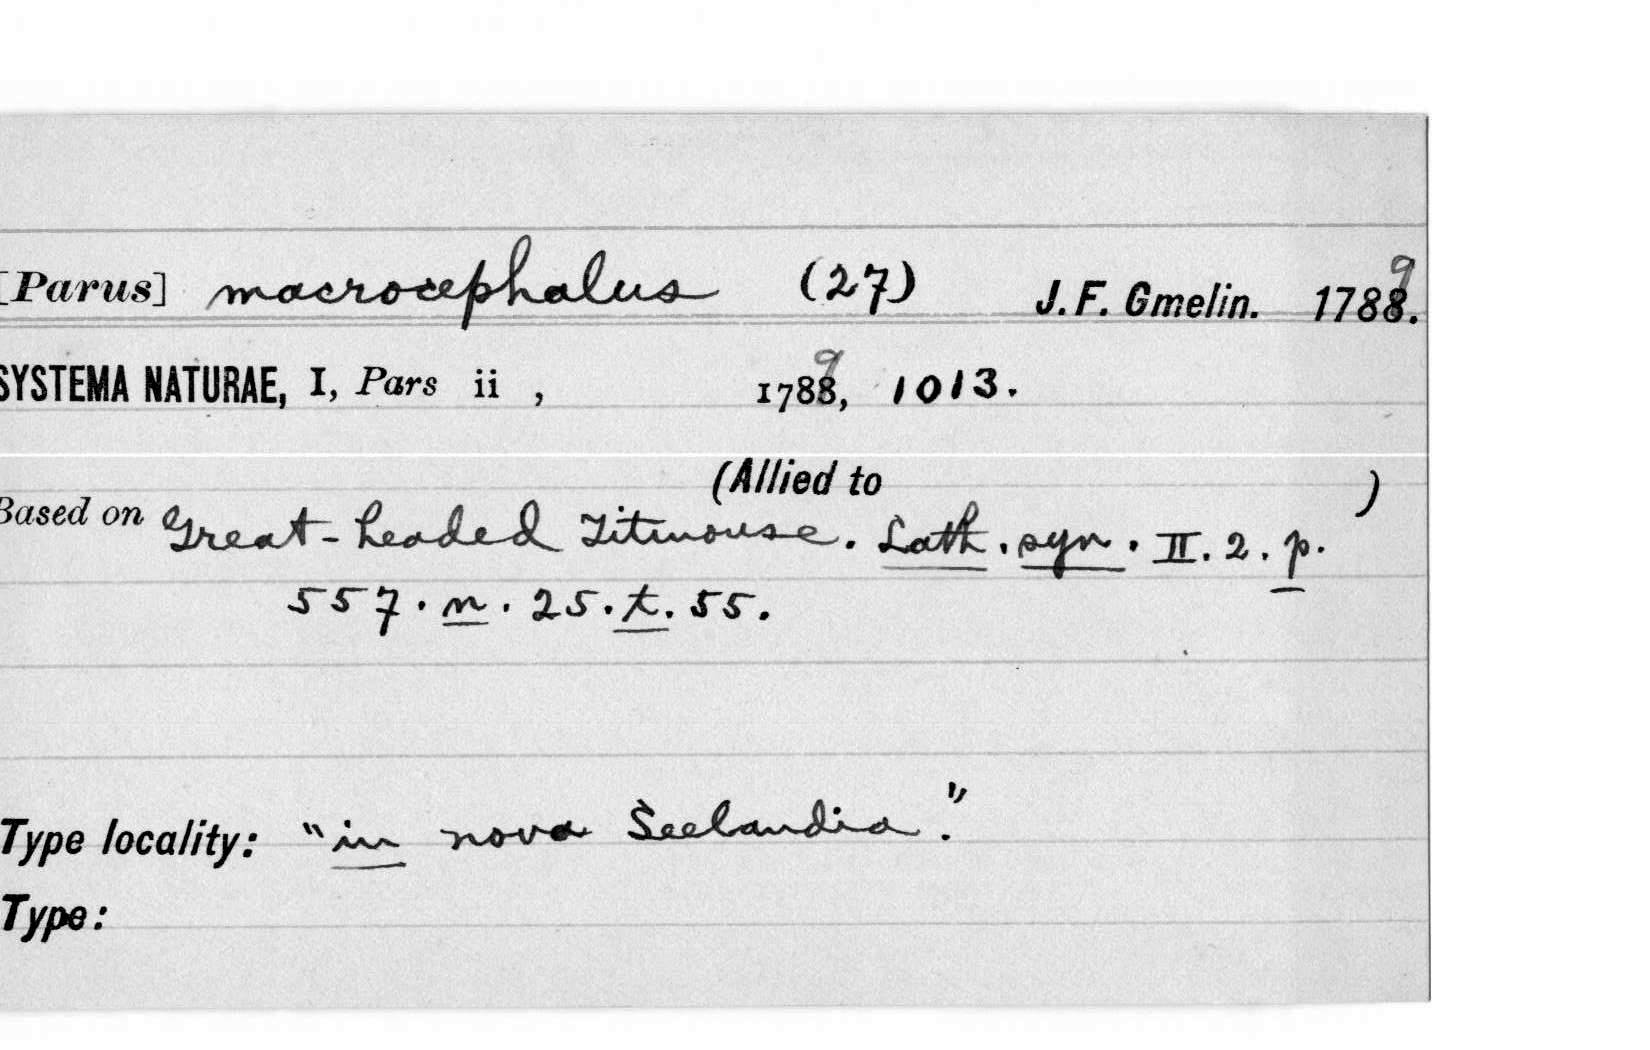 [Parus] macrocephalus (27) J. F. Gmelin. 1788. 9
SYSTEMA NATURAE, I, Pars ii , 1788, 9 1013.
(Allied to )
Based on Great-headed Titmouse. Lath. syn. II. 2. p.
557. n. 25. t. 55.
Type locality: "in nova Seelandia."
Type: